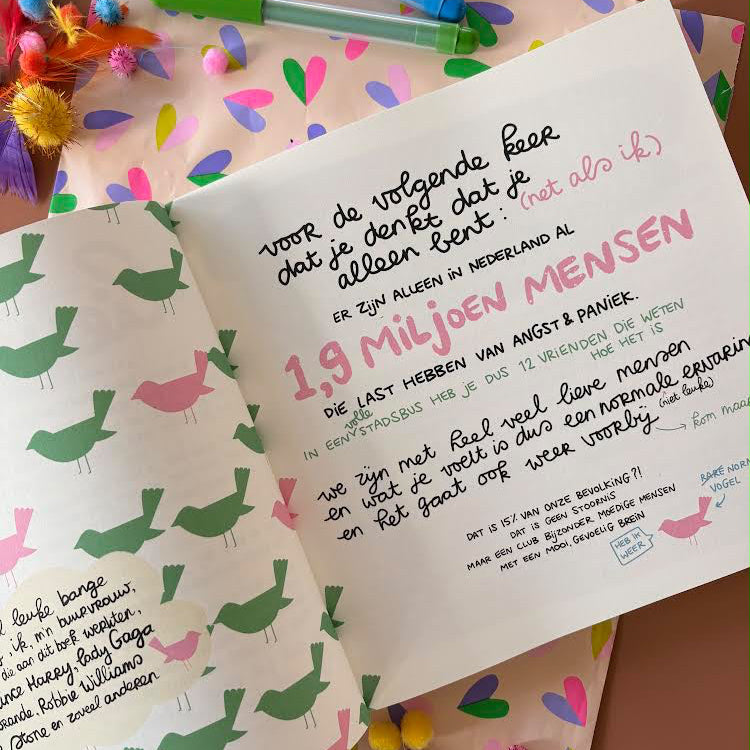 voor de volgende keer
dat je denkt dat je
alleen bent: (net als ik)
ER ZIJN ALLEEN IN NEDERLAND AL
1,9 MILJOEN MENSEN
DIE LAST HEBBEN VAN ANGST & PANIEK.
IN EEN volle STADSBUS HEB JE DUS 12 VRIENDEN DIE WETEN
HOE HET IS
we zijn met heel veel lieve mensen
en wat je voelt is dus een normale ervaring
(niet leuke)
en het gaat ook weer voorbij
kom maar
DAT IS 15% VAN ONZE BEVOLKING?!
DAT IS GEEN STOORNIS
MAAR EEN CLUB BIJZONDER MOEDIGE MENSEN
MET EEN MOOI, GEVOELIG BREIN
RARE NORM
VOGEL
HEB IK
WEER
leuke bange
ik, m'n buurvrouw,
die aan dit boek werkten,
Harry, Lady Gaga
Robbie Williams
Stone en zoveel anderen